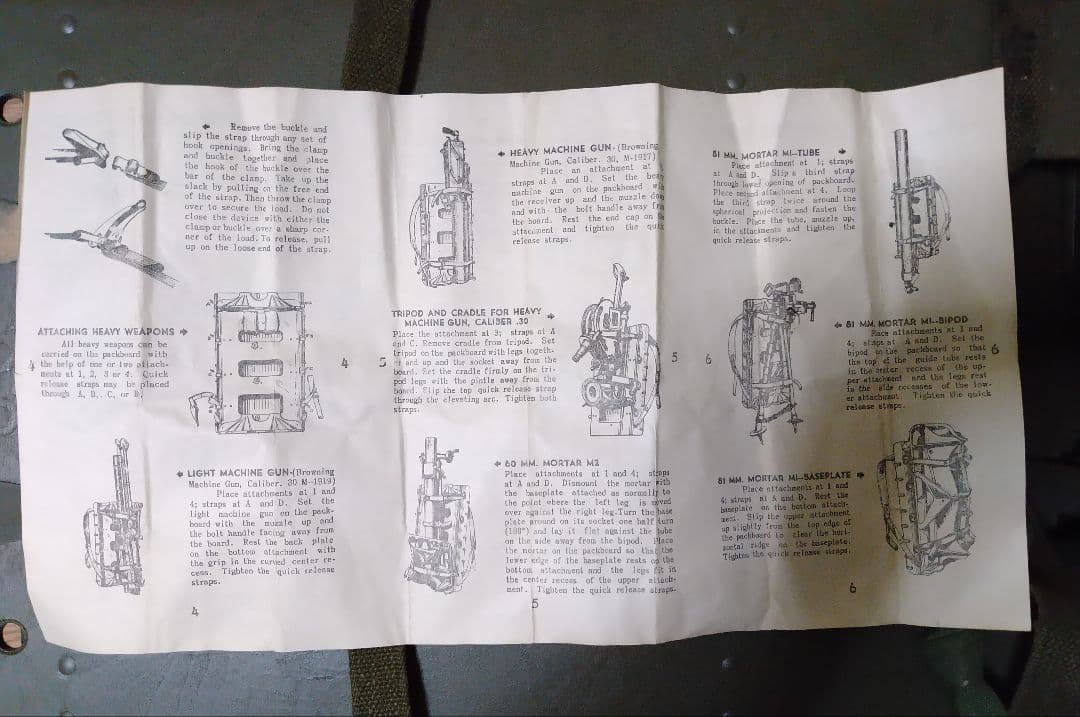 Remove the buckle and
slip the strap through any set of
hook openings. Bring the clamp
and buckle together and place
the hook of the buckle over the
bar of the clamp. Take up the
slack by pulling on the free end
of the strap. Then throw the clamp
over to secure the load. Do not
close the device with either the
clamp or buckle over a sharp cor-
ner of the load. To release, pull
up on the loose end of the strap.
ATTACHING HEAVY WEAPONS
All heavy weapons can be
carried on the packboard with
the help of one or two attach-
ments at 1, 2, 3 or 4. Quick
release straps may be placed
through A, B, C, or D.
4
4
LIGHT MACHINE GUN-(Browning
Machine Gun, Caliber. 30 M-1919)
Place attachments at 1 and
4; straps at A and D. Set the
light machine gun on the pack-
board with the muzzle up and
the bolt handle facing away from
the board. Rest the back plate
on the bottom attachment with
the grip in the curved center re-
cess. Tighten the quick release
straps.
4
HEAVY MACHINE GUN-(Browning
Machine Gun, Caliber. 30, M-1917)
Place an attachment at
straps at A and D. Set the heavy
machine gun on the packboard with
the receiver up and the muzzle down
and with the bolt handle away from
the board. Rest the end cap on the
attachment and tighten the quick
release straps.
TRIPOD AND CRADLE FOR HEAVY
MACHINE GUN, CALIBER .30
Place the attachment at 3; straps at A
and C. Remove cradle from tripod. Set
tripod on the packboard with legs togeth-
er and up and the socket away from the
board. Set the cradle firmly on the tri-
pod legs with the pintle away from the
board. Slip the top quick release strap
through the elevating arc. Tighten both
straps.
5
5
60 MM. MORTAR M2
Place attachments at 1 and 4; straps
at A and D. Dismount the mortar with
the baseplate attached as normally to
the point where the left leg is moved
over against the right leg. Turn the base
plate around on its socket one half turn
(180°) and lay it flat against the tube
on the side away from the bipod. Place
the mortar on the packboard so that the
lower edge of the baseplate rests on the
bottom attachment and the legs fit in
the center recess of the upper attach-
ment. Tighten the quick release straps.
5
81 MM. MORTAR M1-TUBE
Place attachment at 1; straps
at A and D. Slip a third strap
through lower opening of packboard.
Place second attachment at 4. Loop
the third strap twice around the
spherical projection and fasten the
buckle. Place the tube, muzzle up,
in the attachments and tighten the
quick release straps.
81 MM. MORTAR M1-BIPOD
Place attachments at 1 and
4; straps at A and D. Set the
bipod on the packboard so that
the top of the guide tube rests
in the center recess of the up-
per attachment and the legs rest
in the side recesses of the low-
er attachment. Tighten the quick
release straps.
6
6
81 MM. MORTAR M1-BASEPLATE
Place attachments at 1 and
4; straps at A and D. Rest the
baseplate on the bottom attach-
ment. Slip the upper attachment
up slightly from the top edge of
the packboard to clear the hori-
zontal ridge on the baseplate.
Tighten the quick release straps.
6